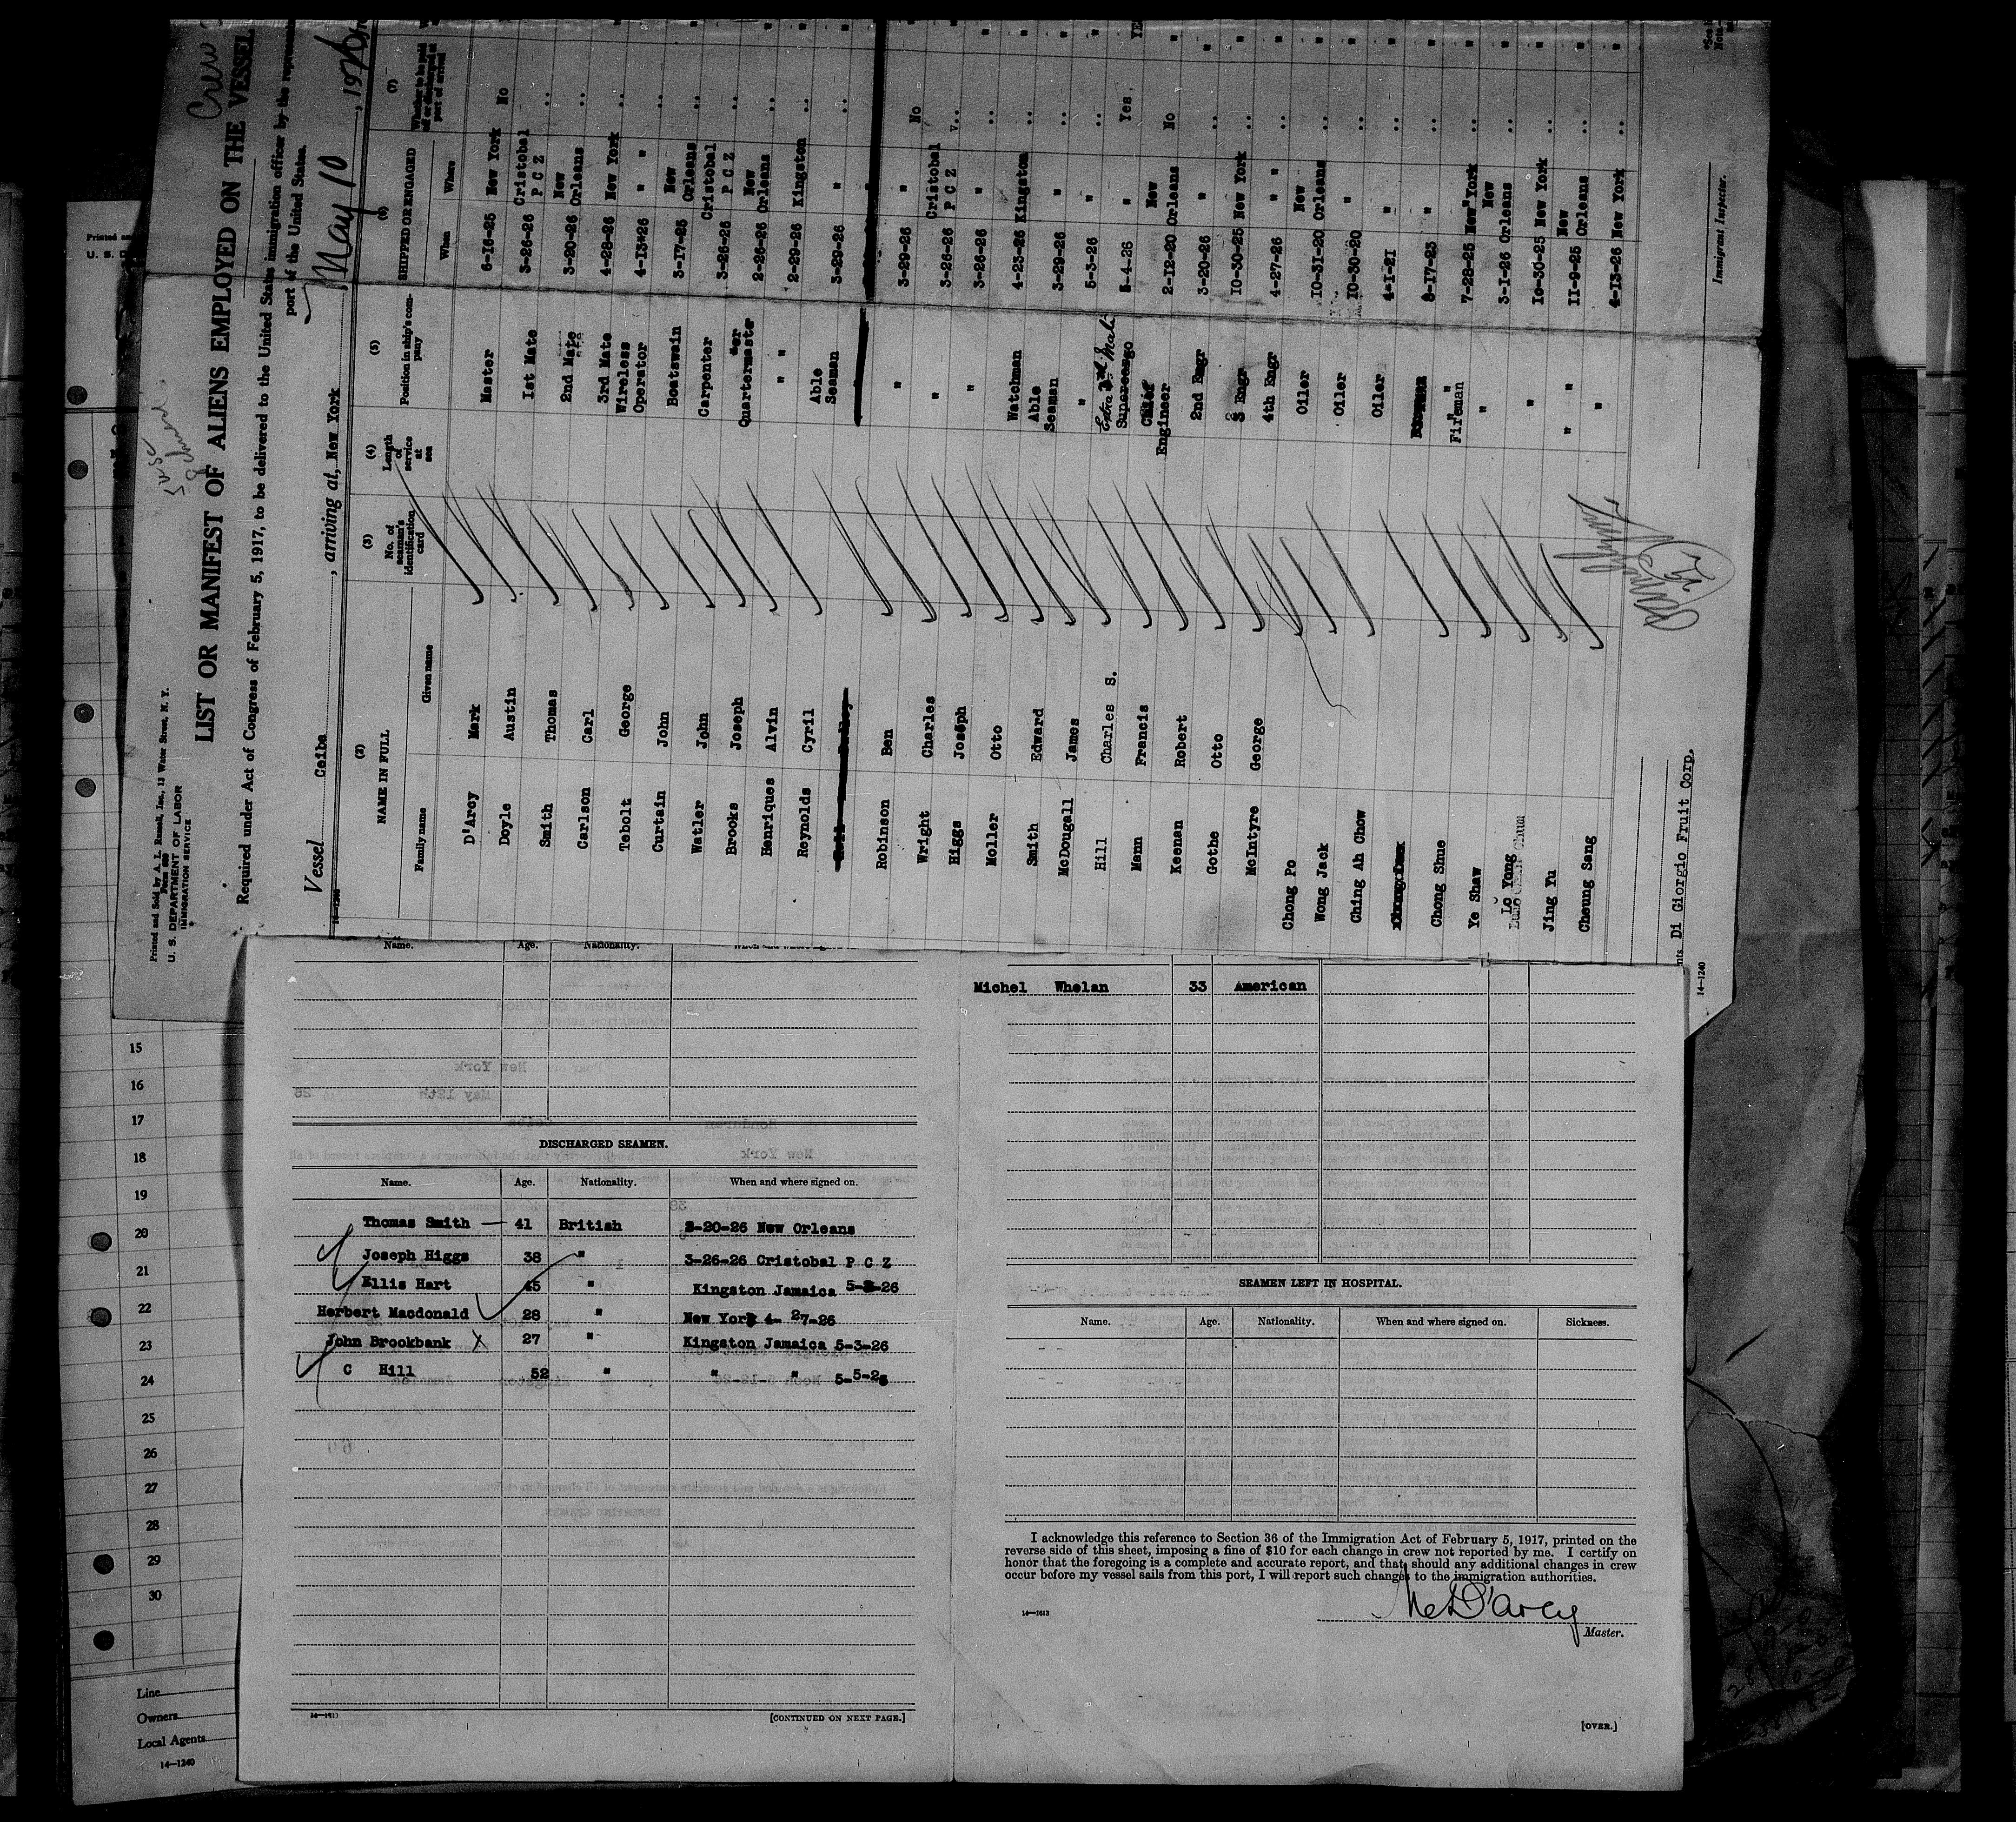 Printed and Sold by A. L. Russell, Inc., 13 Water Street, N. Y.
Form 689
U. S. DEPARTMENT OF LABOR
IMMIGRATION SERVICE
Crew
LIST OR MANIFEST OF ALIENS EMPLOYED ON THE VESSEL
Required under Act of Congress of February 5, 1917, to be delivered to the United States immigration officer by the
port of the United States.
Vessel Ceiba , arriving at, New York May 10 , 1926
14—1240
(2) (3) (4) (5) (6) (7)
NAME IN FULL No. of seaman's identification card Length of service at sea Position in ship's company SHIPPED OR ENGAGED Whether to be paid off or discharged at port of arrival
Family name Given name When Where
D'Arcy Mark Master 6-16-25 New York No
Doyle Austin 1st Mate 3-26-26 Cristobal P C Z ..
Smith Thomas 2nd Mate 3-20-26 New Orleans ..
Carlson Carl 3rd Mate 4-28-26 New York ..
Tebolt George Wireless Operator 4-13-26 " " ..
Curtain John Boatswain 3-17-25 New Orleans ..
Watler John Carpenter 3-26-26 Cristobal P C Z ..
Brooks Joseph Quartermaster 2-26-26 New Orleans ..
Henriques Alvin " " 2-29-26 Kingston ..
Reynolds Cyril Able Seaman 3-29-26 " ..
Robinson Ben " 3-29-26 " No
Wright Charles " 3-26-26 Cristobal P C Z ..
Higgs Joseph " 3-26-26 " ..
Moller Otto Watchman 4-23-26 Kingston ..
Smith Edward Able Seaman 3-29-26 " ..
McDougall James " 5-3-26 " ..
Hill Charles S. Extra 2nd Mate Supercargo 5-4-26 " Yes
Mann Francis Chief Engineer 2-12-20 New Orleans No
Keenan Robert 2nd Engr 3-20-26 " ..
Gothe Otto 3 Engr 10-30-25 New York ..
McIntyre George 4th Engr 4-27-26 " " ..
Chong Po Oiler 10-31-20 New Orleans ..
Wong Jack Oiler 10-30-20 " ..
Ching Ah Chow Oiler 4-1-21 " ..
Chong Shue Fireman 8-17-23 " ..
Ye Shaw " 7-28-25 New York ..
Lo Yong " 3-1-26 New Orleans ..
Jing Yu " 10-30-25 New York ..
Cheung Sang " 11-9-25 New Orleans ..
4-13-26 New York ..
Di Giorgio Fruit Corp.
Immigrant Inspector.
14—1240
Name. Age. Nationality.
DISCHARGED SEAMEN.
Name. Age. Nationality. When and where signed on.
Thomas Smith — 41 British 3-20-26 New Orleans
Joseph Higgs 38 " 3-26-26 Cristobal P C Z
Ellis Hart 45 " Kingston Jamaica 5-3-26
Herbert Macdonald 28 " New York 4- 27-26
John Brookbank X 27 " Kingston Jamaica 5-3-26
C Hill 52 " " " 5-5-26
[CONTINUED ON NEXT PAGE.]
Michel Whelan 33 American
SEAMEN LEFT IN HOSPITAL.
Name. Age. Nationality. When and where signed on. Sickness.
I acknowledge this reference to Section 36 of the Immigration Act of February 5, 1917, printed on the
reverse side of this sheet, imposing a fine of $10 for each change in crew not reported by me. I certify on
honor that the foregoing is a complete and accurate report, and that should any additional changes in crew
occur before my vessel sails from this port, I will report such changes to the immigration authorities.
14—1613
Master.
[OVER.]
15
16
17
18
19
20
21
22
23
24
25
26
27
28
29
30
Line
Owners
Local Agents
14—1240